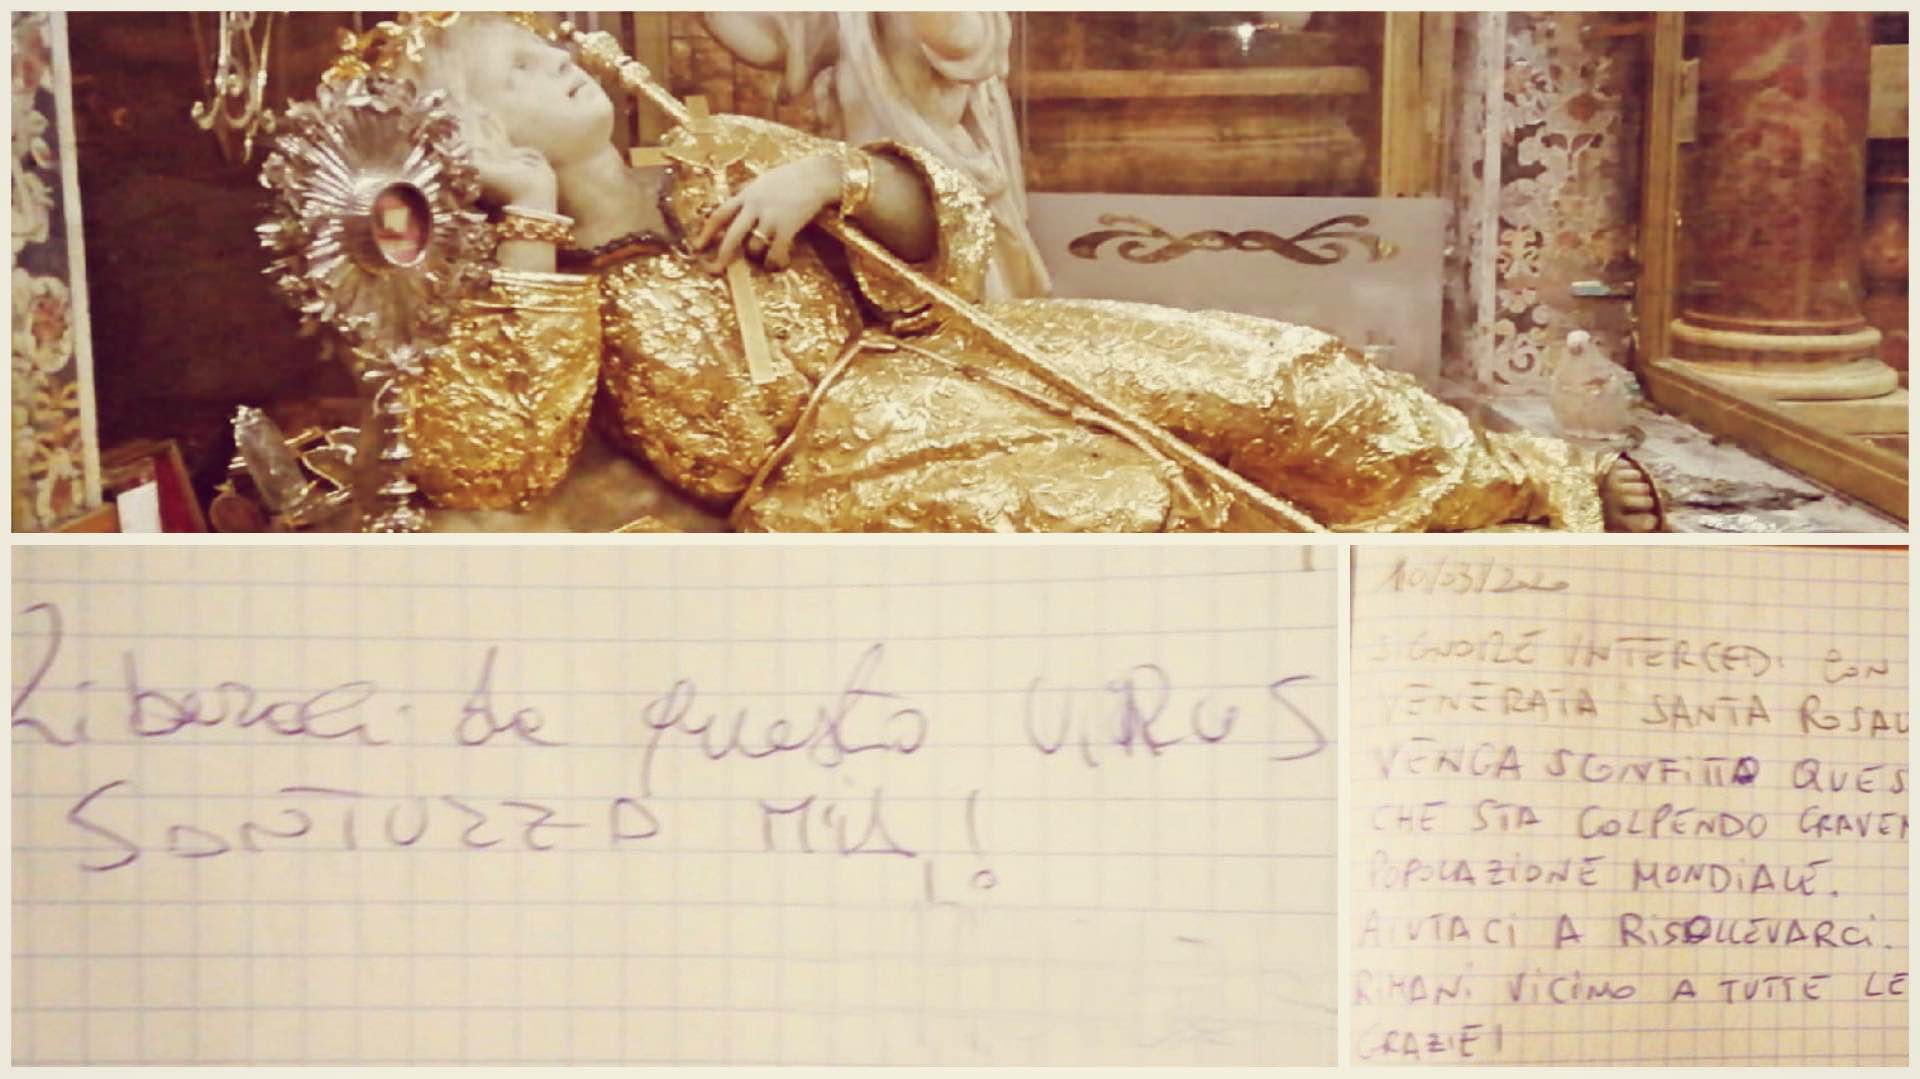 Liberaci da questo VIRUS
SANTUZZA MIA!
10/03/2020
SIGNORE INTERCEDI CON
VENERATA SANTA ROSAL
VENGA SCONFITTO QUES
CHE STA COLPENDO GRAVEM
POPOLAZIONE MONDIALE.
AIUTACI A RISOLLEVARCI.
RIMANI VICINO A TUTTE LE
GRAZIE!